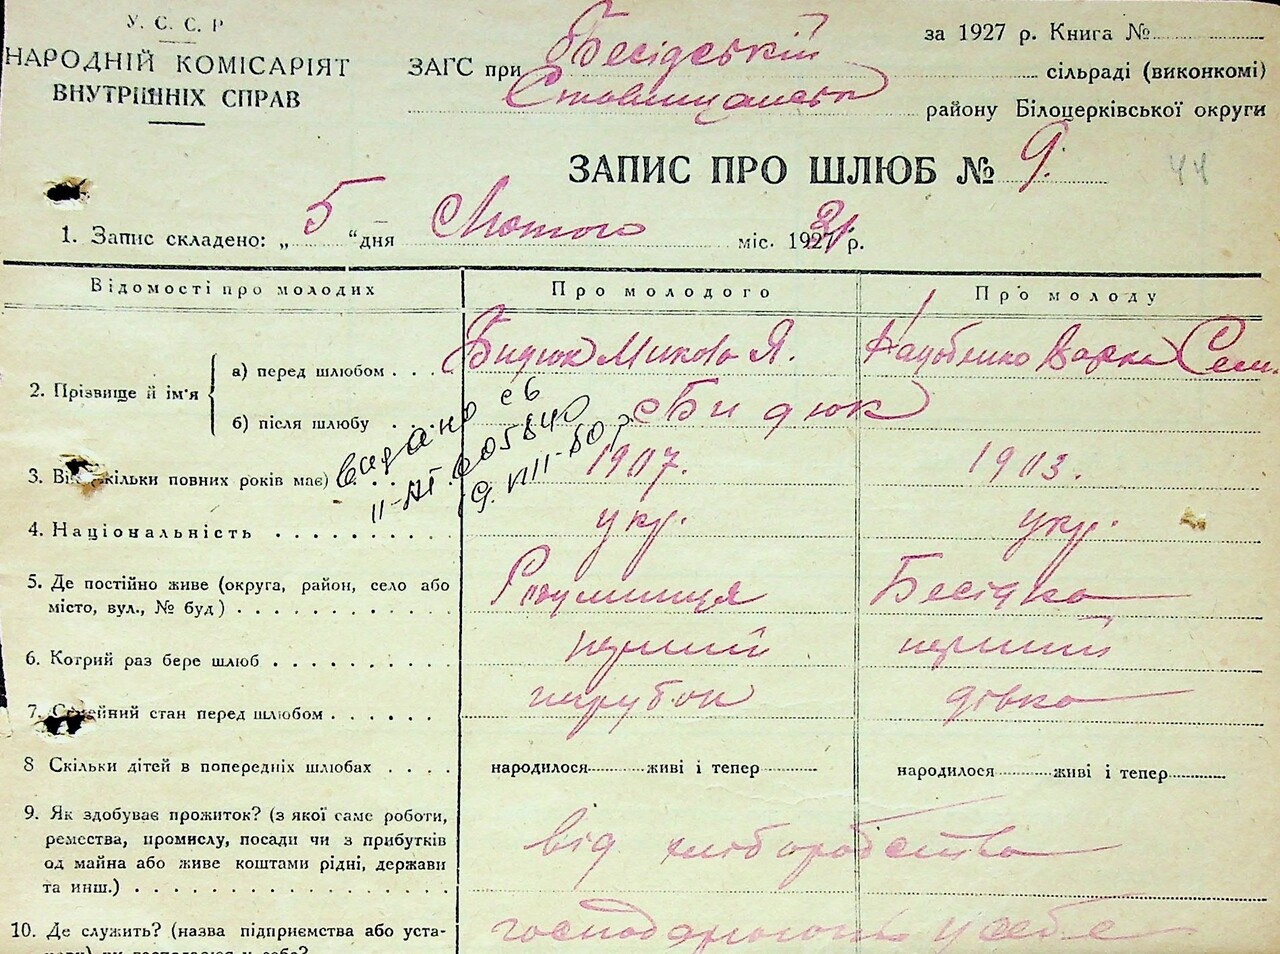 У. С. С. Р
НАРОДНІЙ КОМІСАРІЯТ
ВНУТРІШНІХ СПРАВ
за 1927 р. Книга №
ЗАГС при Бесідській сільраді (виконкомі)
району Білоцерківської округи
ЗАПИС ПРО ШЛЮБ № 9.
44
1. Запис складено: „ 5 “ дня Лютого міс. 1927 р.
Відомості про молодих
Про молодого
Про молоду
2. Прізвище й ім'я
а) перед шлюбом . . .
Бидюк Микола Я.
Варка Сем.
б) після шлюбу
Бидюк
видано св
II-АГ 005840
9. VIII-80 р.
3. Вік скільки повних років має)
1907.
1903.
4. Національність . . . . . . . . .
укр.
укр.
5. Де постійно живе (округа, район, село або
місто, вул., № буд) . . . . . . . . . .
Бесідка
6. Котрий раз бере шлюб . . . . . . . . .
перший
перший
7. Сімейний стан перед шлюбом . . . . . .
парубок
дівка
8 Скільки дітей в попередніх шлюбах . . . .
народилося живі і тепер
народилося живі і тепер
9. Як здобуває прожиток? (з якої саме роботи,
ремества, промислу, посади чи з прибутків
од майна або живе коштами рідні, держави
та инш.) . . . . . . . . . . . . . . . .
від хліборобства
10. Де служить? (назва підприємства або уста-
господарюють у себе